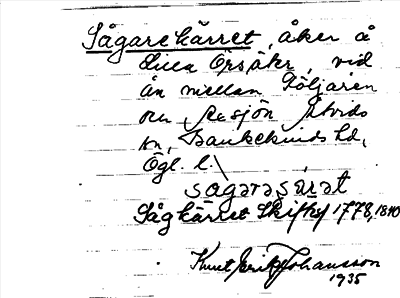 Sågarekärret, åker å
Lilla Örsåker, vid
ån mellan Följaren
och sjön Åtvids
sn, Bankekinds hd,
Ögl. l.
Sågkärret Skifteh 1778, 1840
Knut Erik Johansson
1935